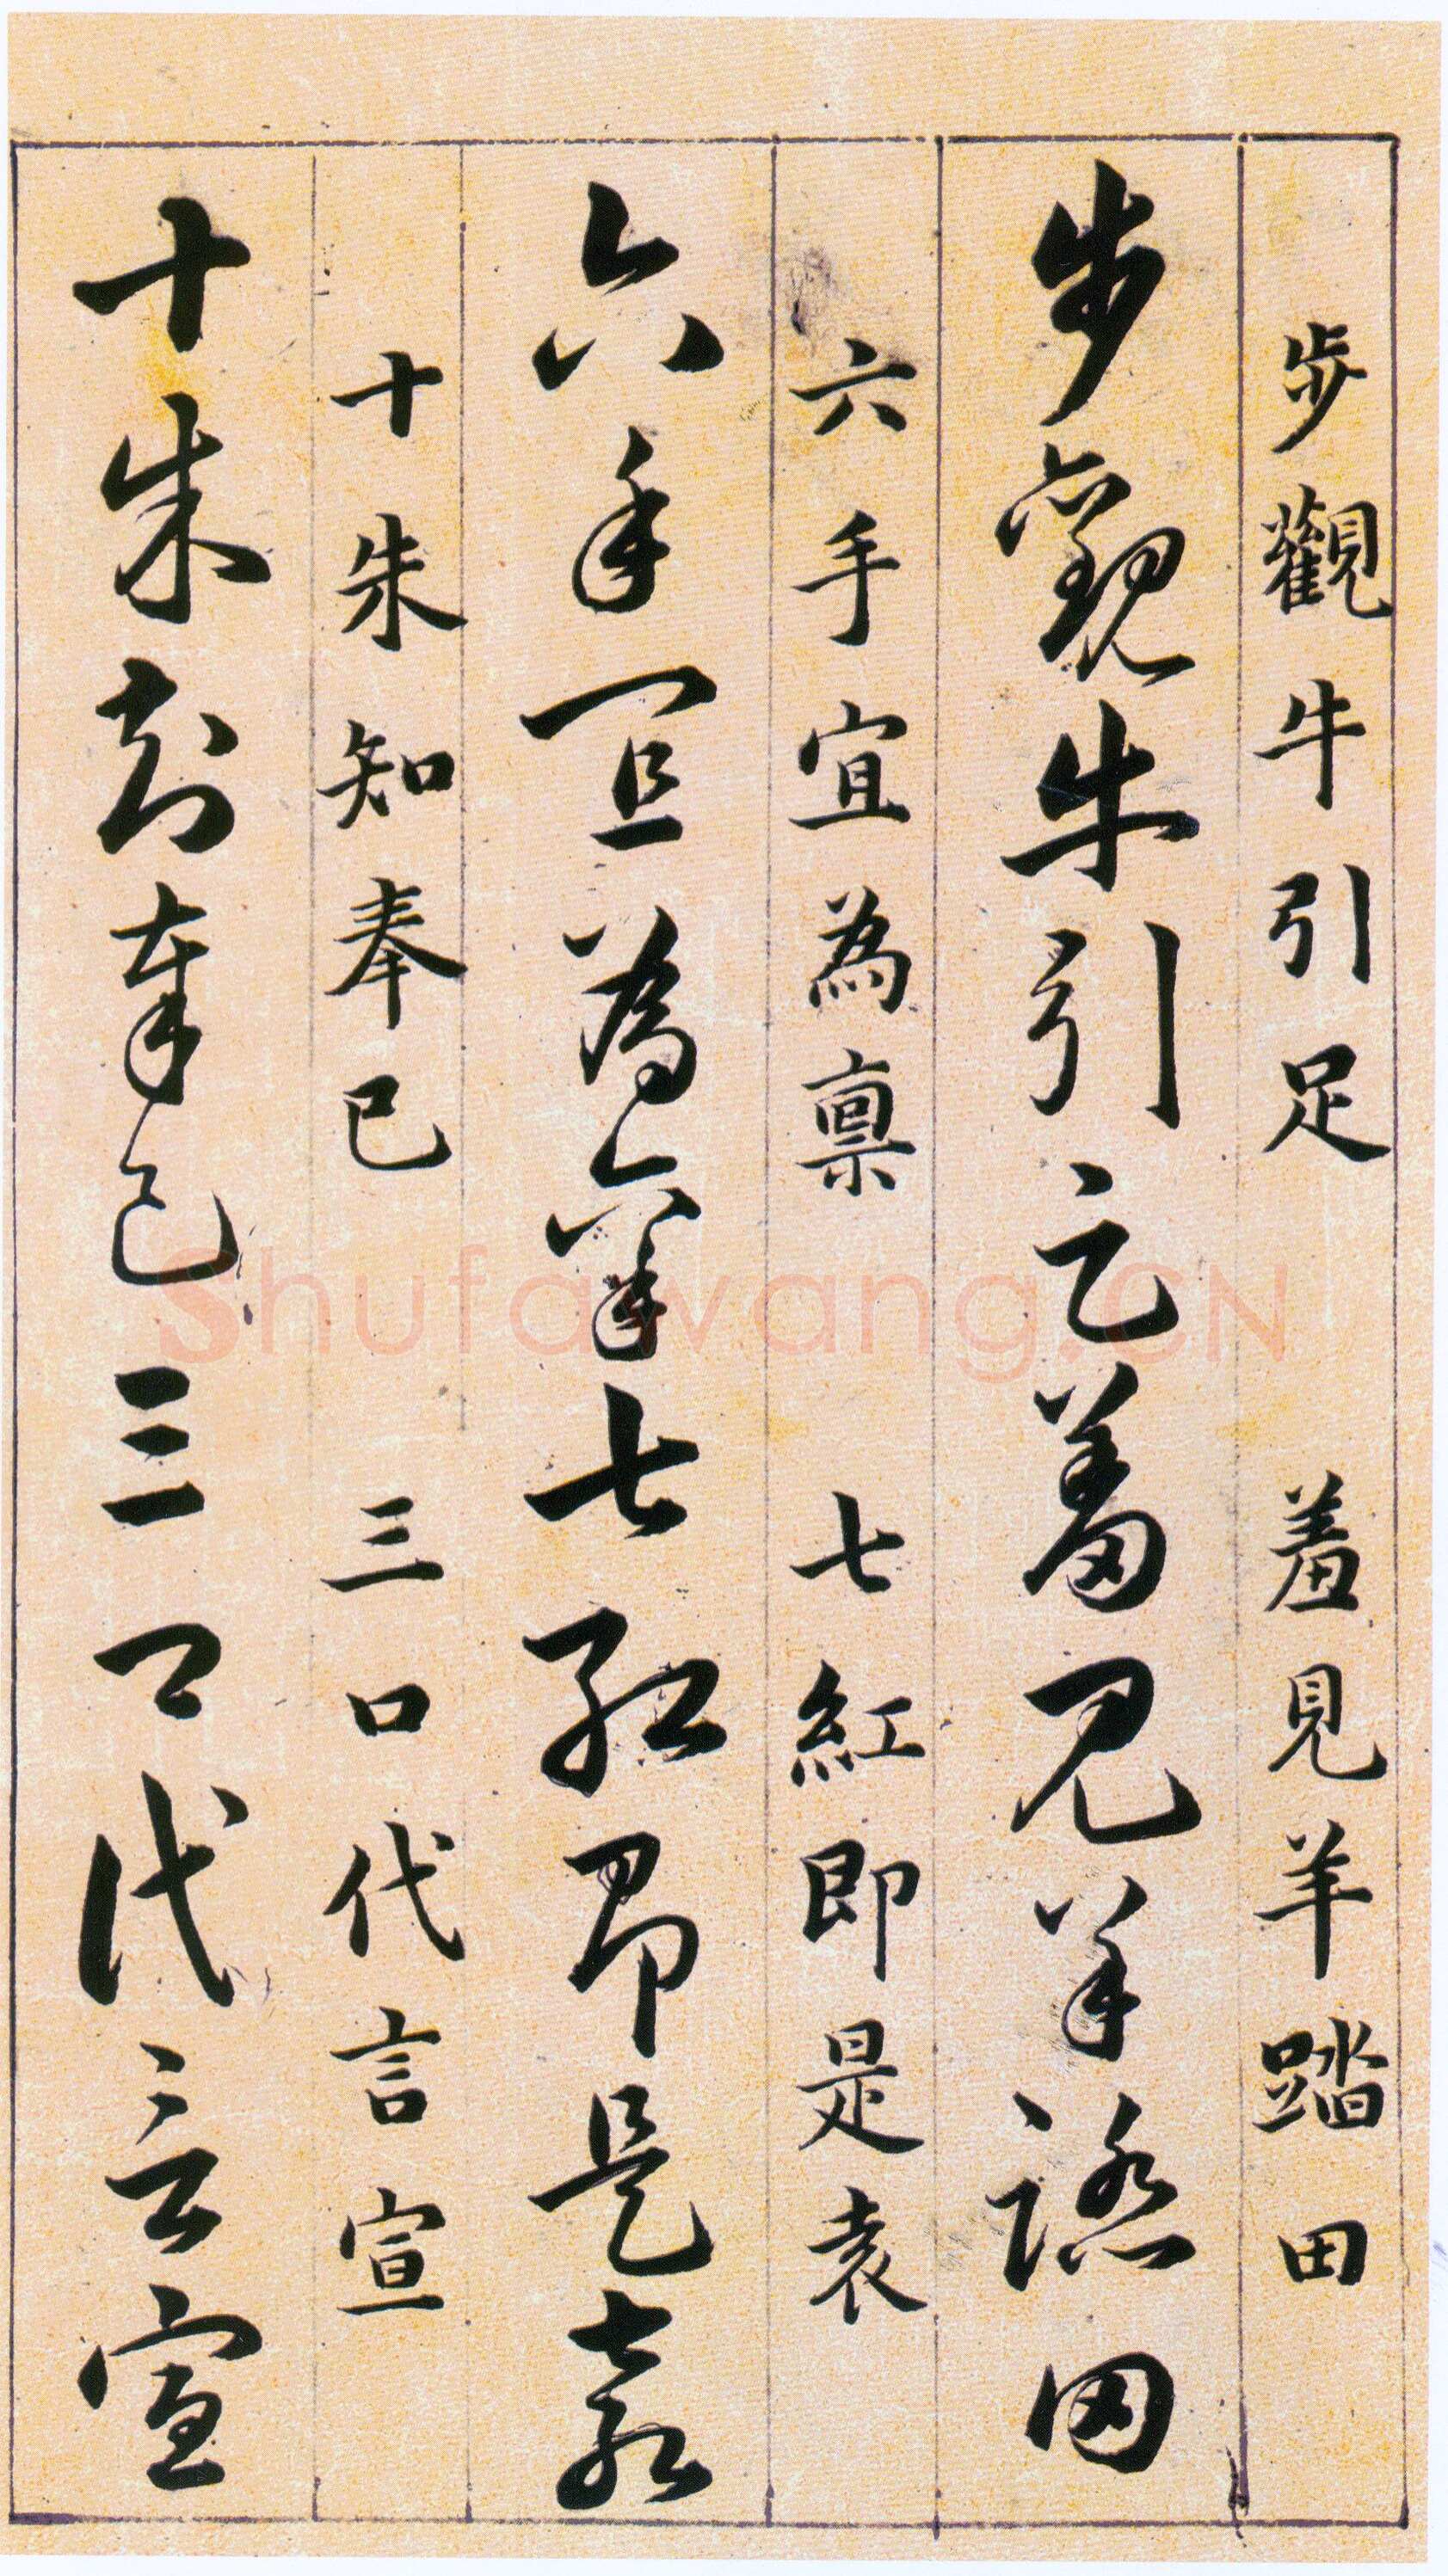 步觀牛引足 羞見羊踏田
步觀牛引足羞見羊踏田
六手宜為禀 七紅即是袁
六手宜為禀七紅即是袁
十朱知奉已 三口代言宣
十朱知奉已三口代言宣
Shufawang.CN